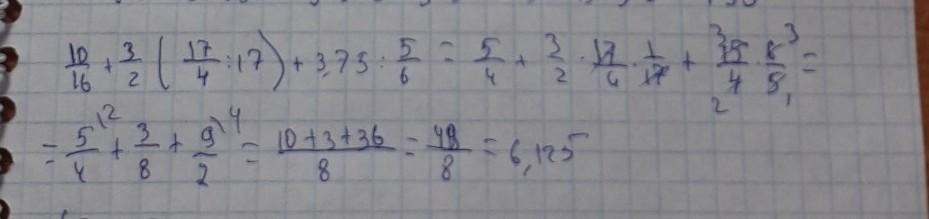 10/16 + 3/2 (17/4 : 17) + 3,75 : 5/6 = 5/4 + 3/2 · 17/4 · 1/17 + 15/4 · 6/5 =
= 5/4 + 3/8 + 9/2 = (10+3+36)/8 = 49/8 = 6,125